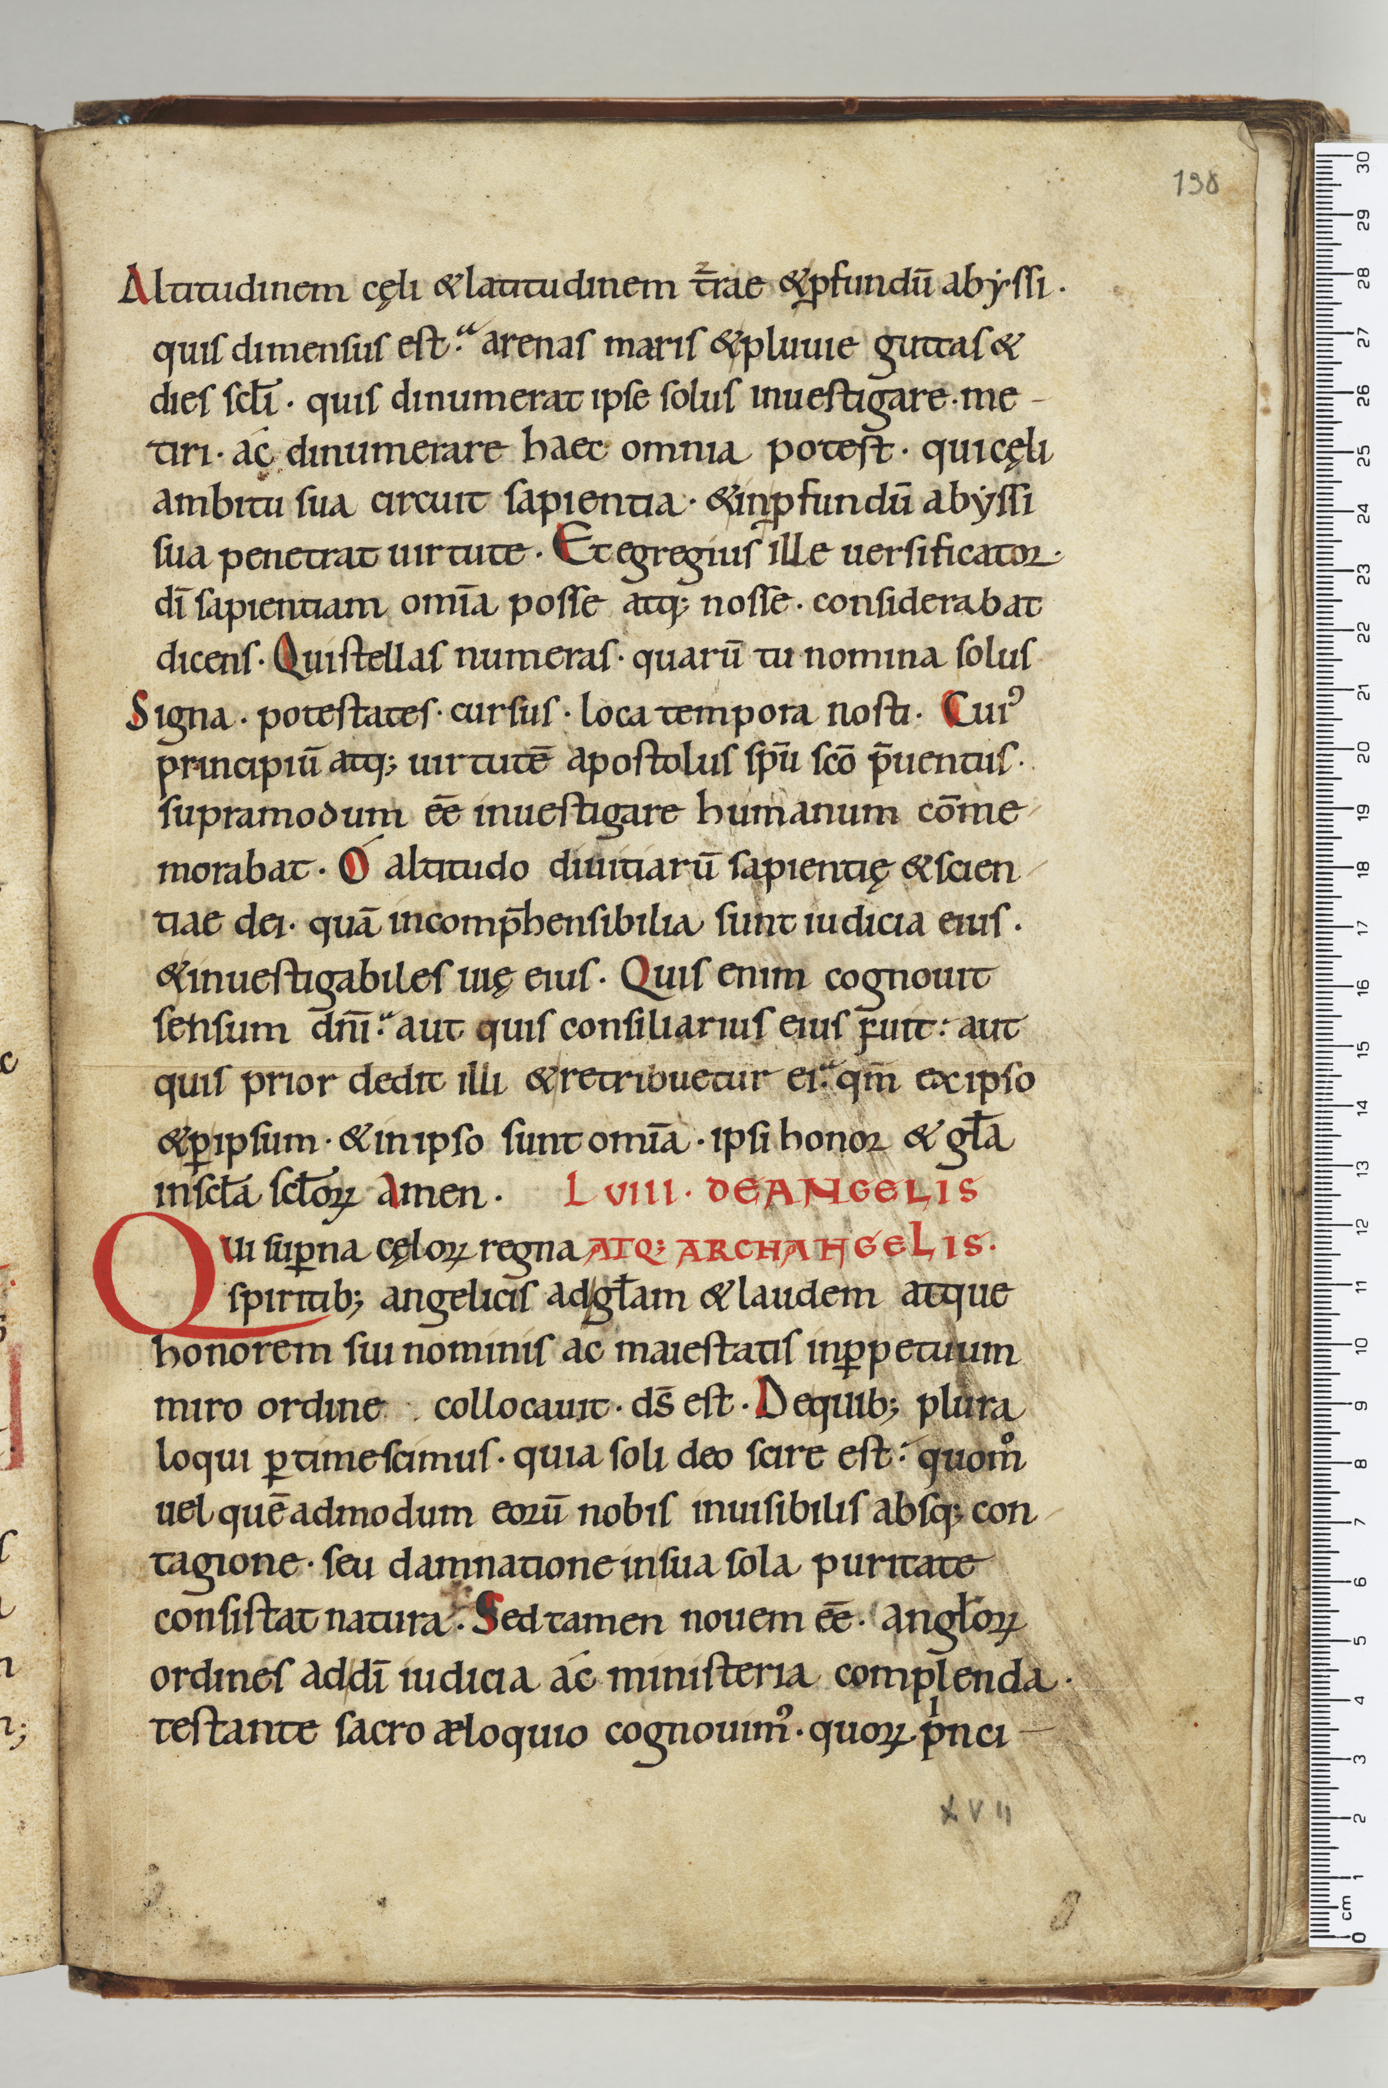 138
Altitudinem cęli & latitudinem t̄rae & ꝓfundū abẏssi.
quis dimensus est? arenas maris & pluuie guttas &
dies scł̄i. quis dinumerat ipse solus inuestigare. me-
tiri. ac dinumerare haec omnia potest. qui cęli
ambitu sua circuit sapientia. & in ꝓfundū abẏssi
sua penetrat uirtute. Et egregius ille uersificator.
dī sapientiam om̄ia posse atq; nosse. considerabat
dicens. Qui stellas numeras. quarū tu nomina solus
Signa. potestates. cursus. loca tempora nosti. Cuiꝰ
principiū atq; uirtutē apostolus sp̄u scō p̄uentus.
supra modum eē inuestigare humanum cōme-
morabat. O altitudo diuitiarū sapientię & scien-
tiae dei. quā incomp̄hensibilia sunt iudicia eius.
& inuestigabiles uię eius. Quis enim cognouit
sensum dn̄i? aut quis consiliarius eius fuit? aut
quis prior dedit illi & retribuetur ei? qm̄ ex ipso
& ꝑ ipsum. & in ipso sunt om̄ia. ipsi honor & gł̄a
in scł̄a scł̄oꝝ Amen. LVIII. DE ANGELIS
Qui suꝑna cęloꝝ regna ATQ; ARCHANGELIS.
spiritib; angelicis ad gł̄am & laudem atque
honorem sui nominis ac maiestatis in ꝑpetuum
miro ordine collocauit. ds̄ est. De quib; plura
loqui ꝑtimescimus. quia soli deo scire est? quom̊
uel quēadmodum eorū nobis inuisibilis absq; con-
tagione. seu damnatione in sua sola puritate
consistat natura. Sed tamen nouem eē. angł̄oꝝ
ordines ad dī iudicia ac ministeria compł̄enda.
testante sacro æloquio cognouimꝰ. quoꝝ pͥnci-
XVII